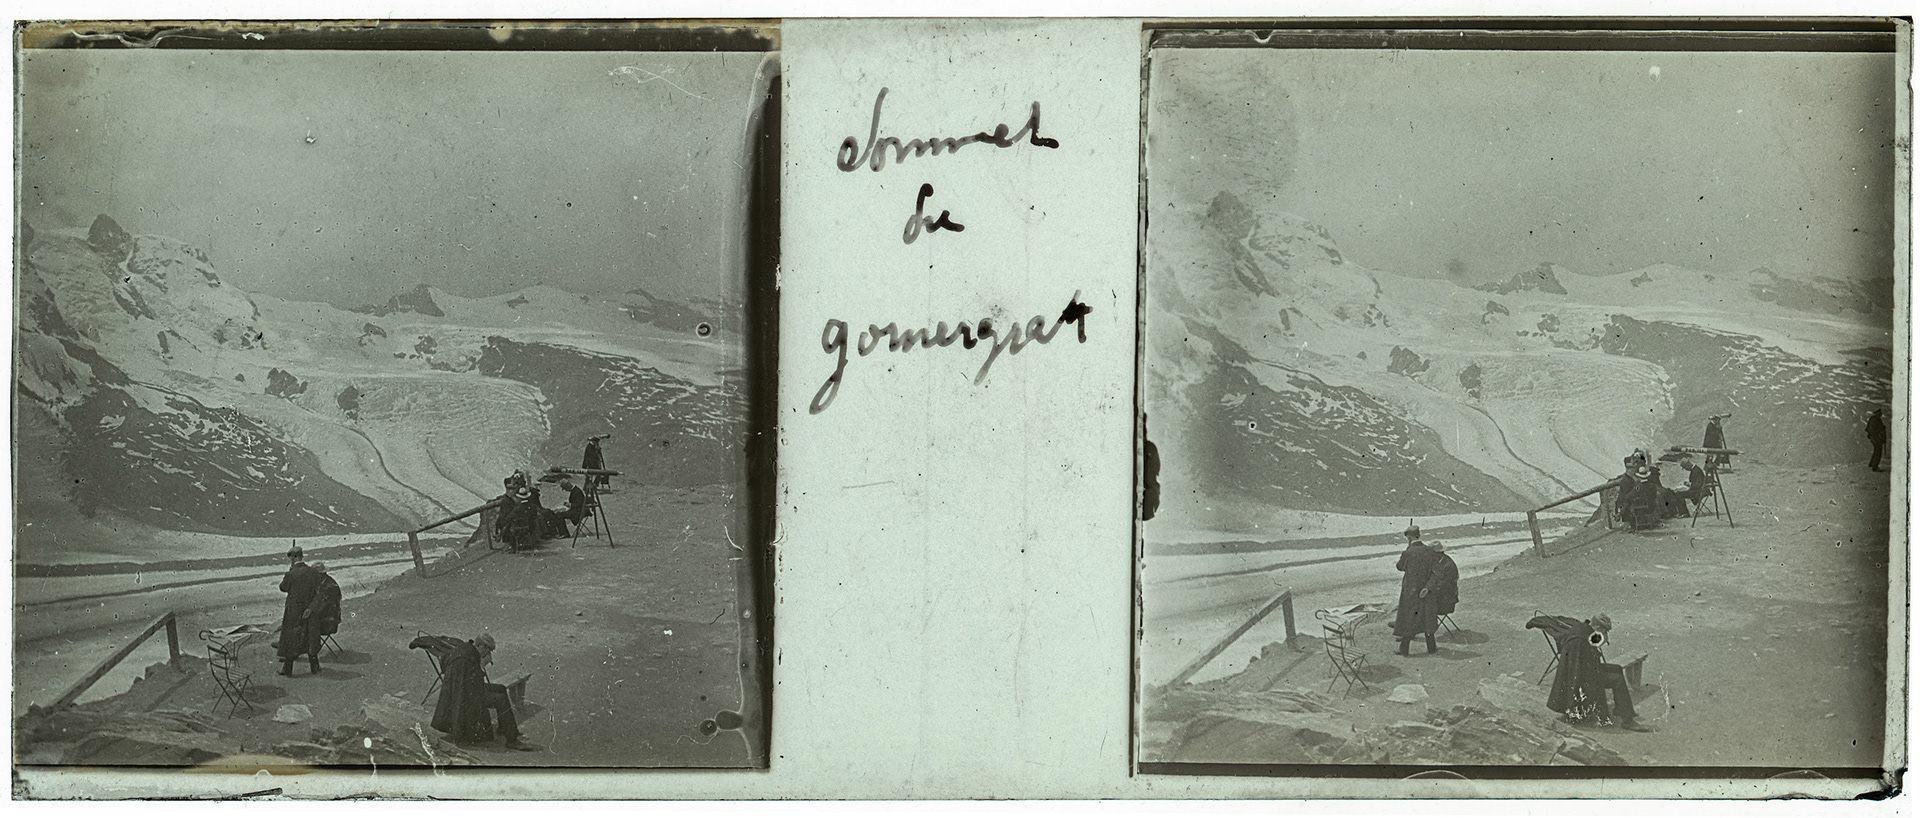 Sommet
du
gornergrat